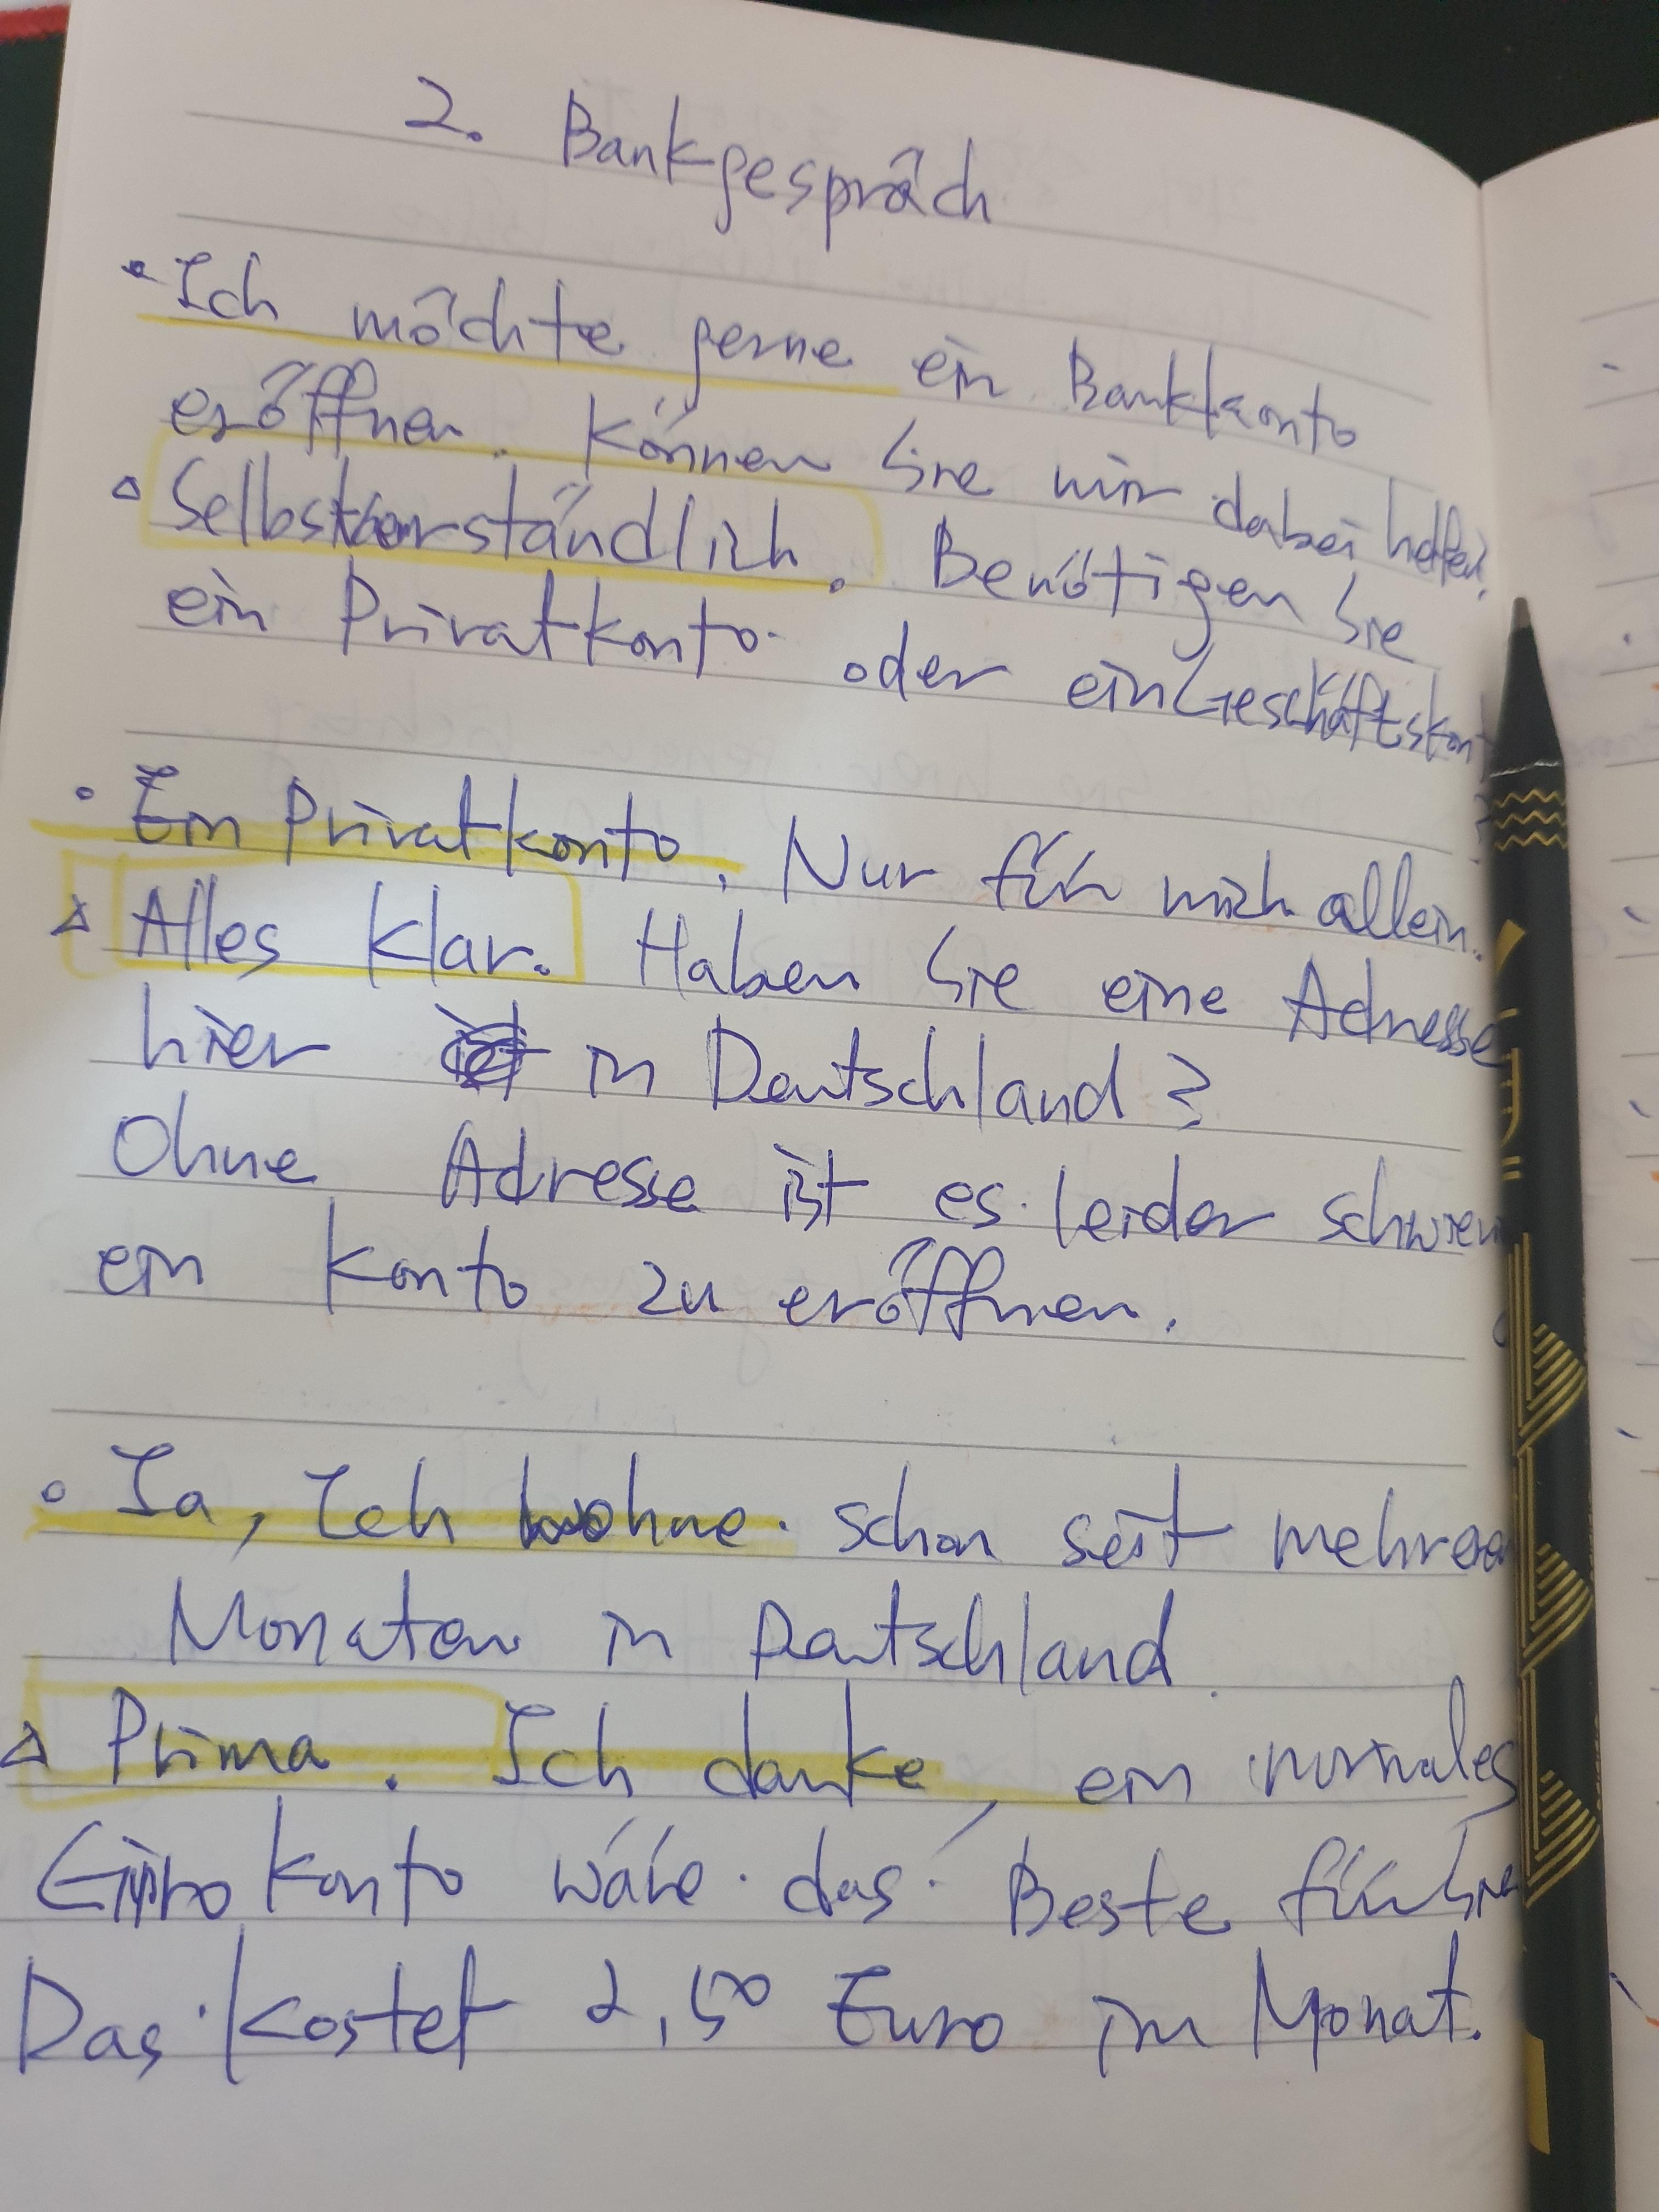 2. Bankgespräch
• Ich möchte gerne ein Bankkonto
eröffnen. Können Sie mir dabei helfen?
△ Selbstverständlich. Benötigen Sie
ein Privatkonto oder ein Geschäftskont
• Ein Privatkonto. Nur für mich allein.
△ Alles klar. Haben Sie eine Adresse
hier in Deutschland?
Ohne Adresse ist es leider schwier
ein Konto zu eröffnen.
• Ja, Ich wohne schon seit mehreren
Monaten in Deutschland.
△ Prima. Ich danke, ein normales
Girokonto wäre das Beste für Sie
Das kostet 2,50 Euro im Monat.